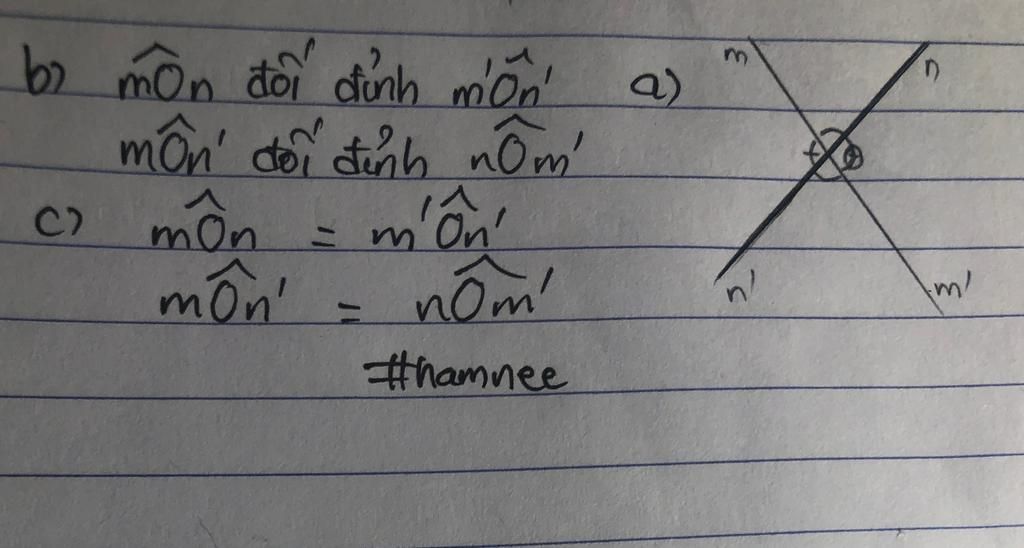 b) m̂On đối đỉnh m'Ôn' a)
mÔn' đối đỉnh nÔm'
c) mÔn = m'Ôn'
mÔn' = nÔm'
#hamnee
m
n
n'
m'